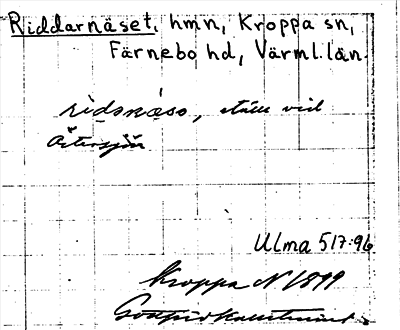 Riddarnäset, hmn, Kroppa sn,
Färnebo hd, Värml. län.
ridsnäso, ställe vid
Östersjön
Ulma 517:96
Kroppa N 1899
Gottfrid Kallstenius